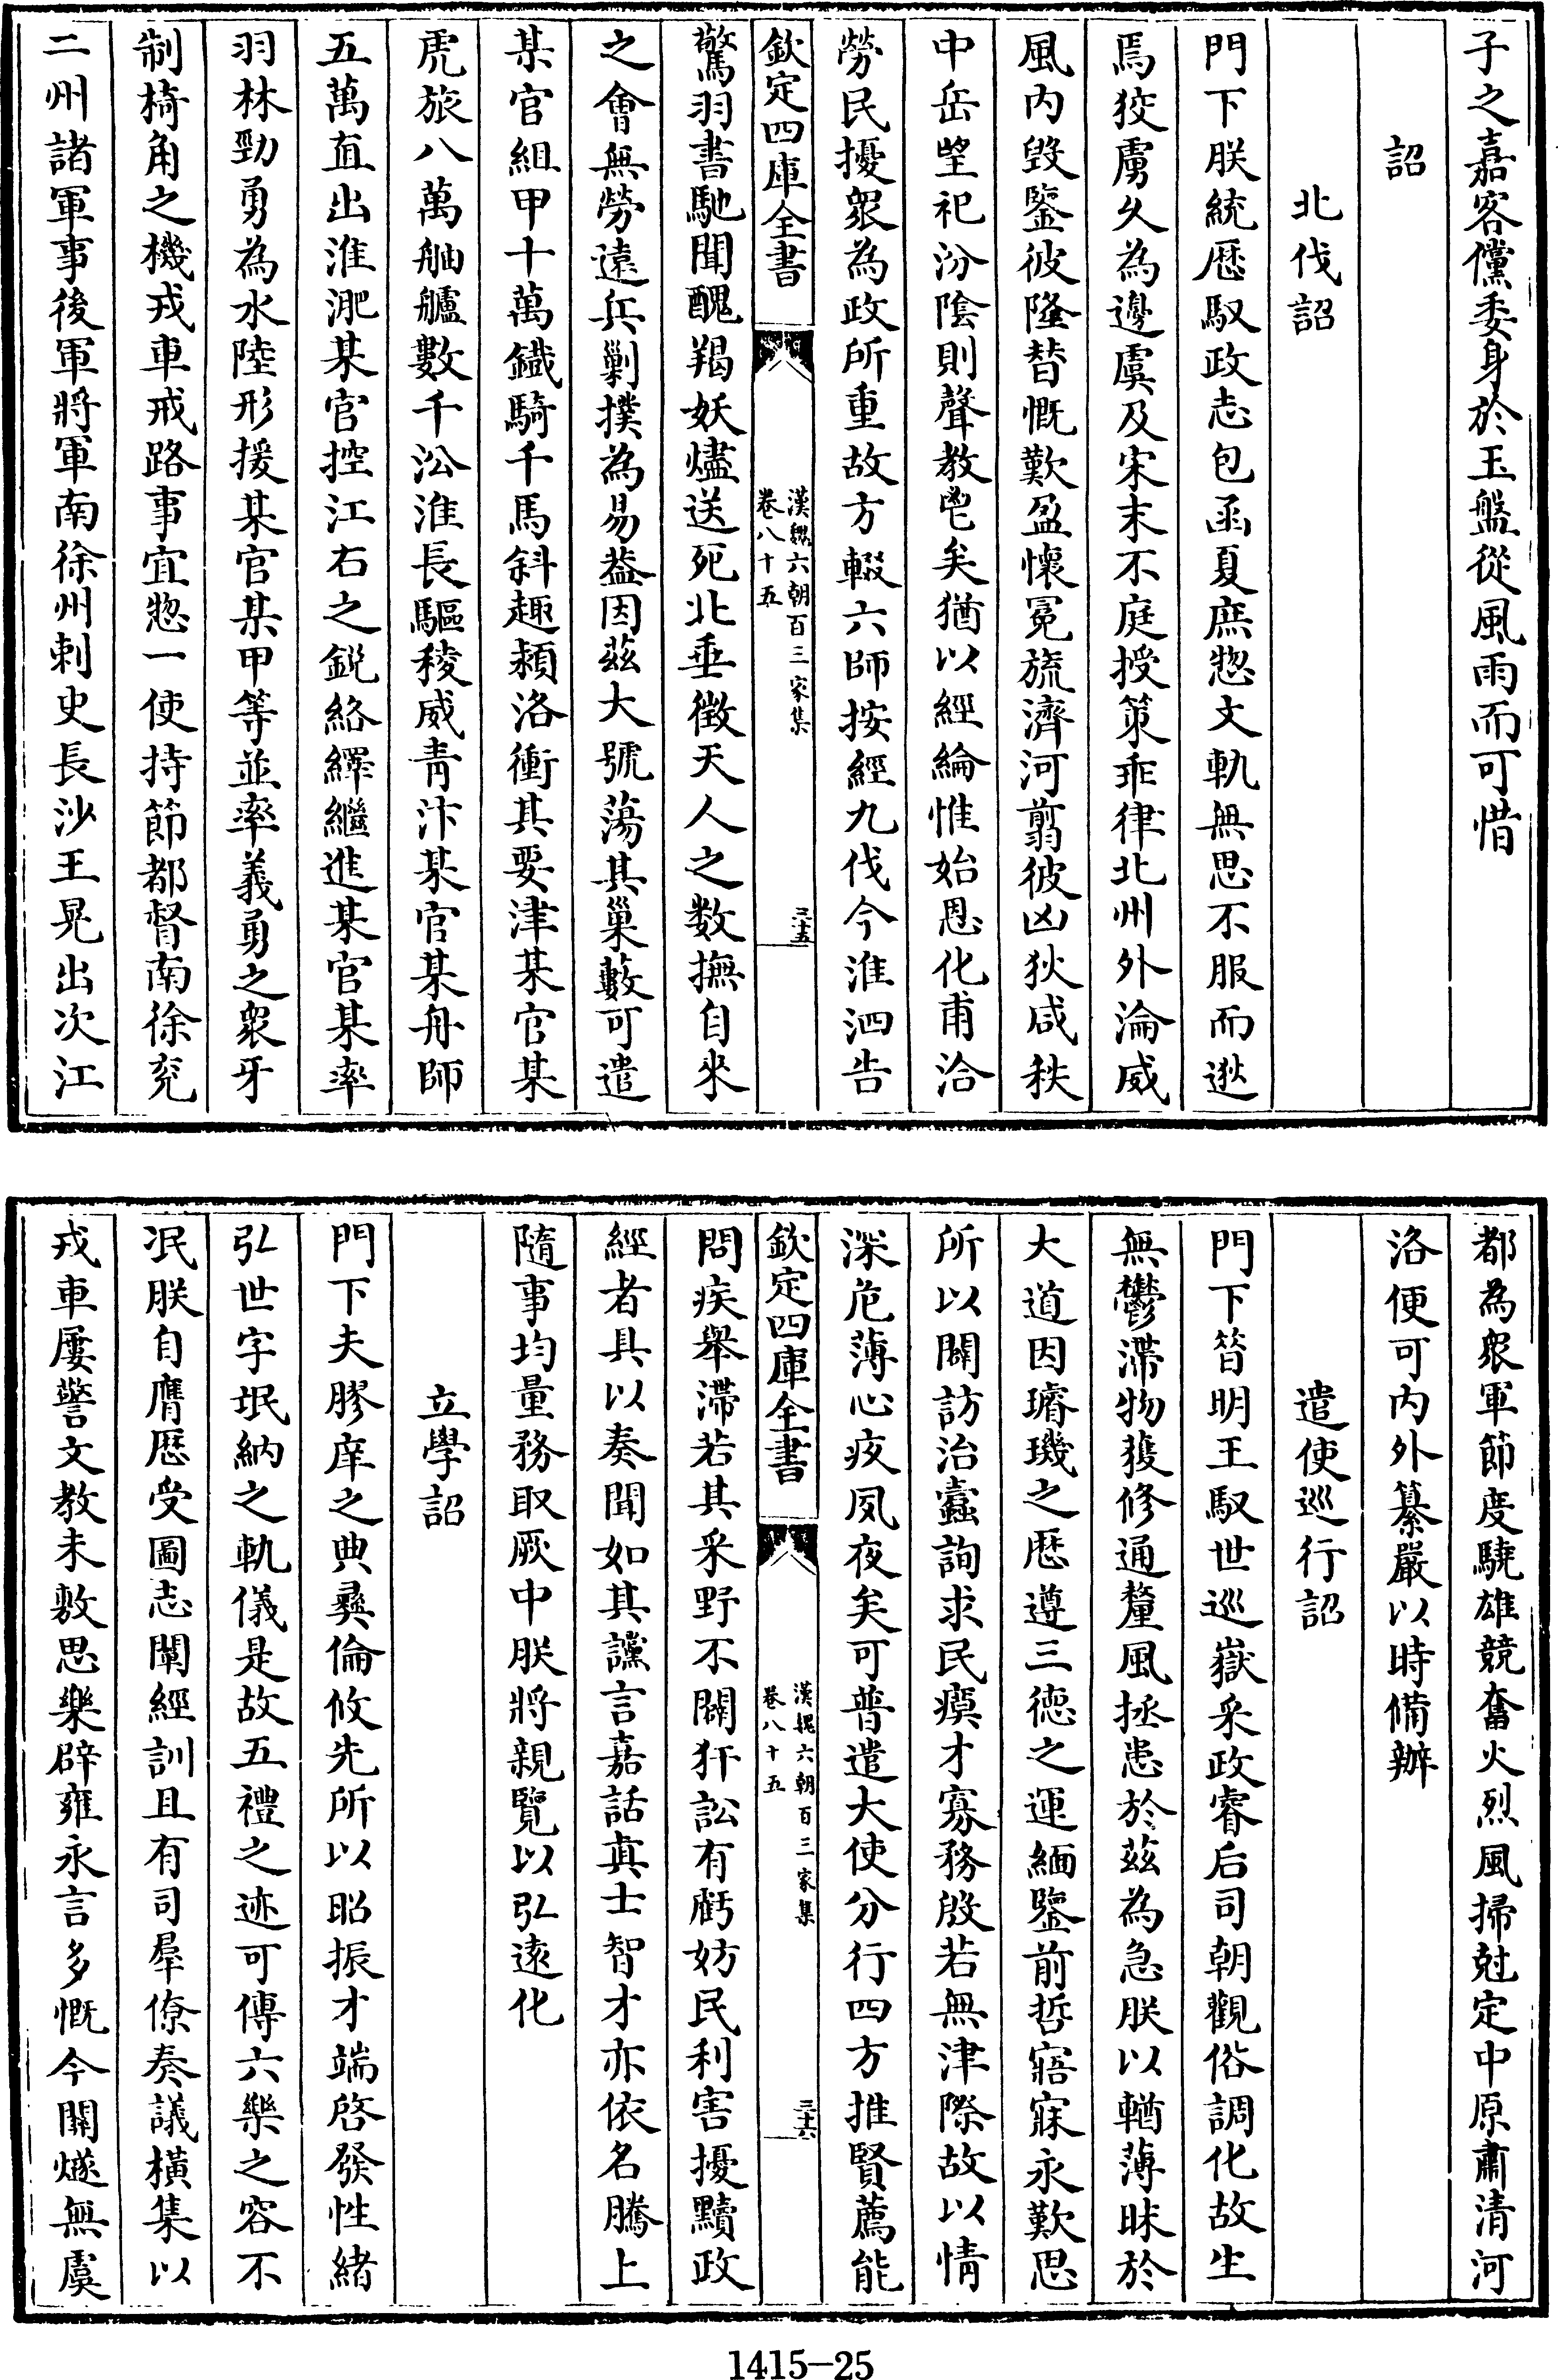 子之嘉客儻委身於玉盤從風雨而可惜
詔
北伐詔
門下朕統歴馭政志包函夏庶惣文軌無思不服而逖
焉狡虜久為邊虞及宋末不庭授策乖律北州外淪威
風内毀鑒彼隆替慨歎盈懷冕旒濟河翦彼凶狄咸秩
中岳望祀汾隂則聲教鬯矣猶以經綸惟始恩化甫洽
勞民擾衆為政所重故方輟六師按經九伐今淮泗告
欽定四庫全書
漢魏六朝百三家集
卷八十五
三十五
驚羽書馳聞醜羯妖燼送死北垂徴天人之数撫自來
之會無勞遠兵剿撲為易葢因茲大號蕩其巢藪可遣
某官組甲十萬鐡騎千馬斜趣潁洛衝其要津某官某
虎旅八萬舳艫數千㳂淮長驅稜威青汴某官某舟師
五萬直出淮淝某官控江右之鋭絡繹繼進某官某率
羽林勁勇為水陸形援某官某甲等並率義勇之衆牙
制椅角之機戎車戒路事宜惣一使持節都督南徐兖
二州諸軍事後軍將軍南徐州刺史長沙王晃出次江
都為衆軍節度驍雄競奮火烈風掃尅定中原肅清河
洛便可内外纂嚴以時備辦
遣使巡行詔
門下㫺明王馭世巡嶽采政睿后司朝觀俗調化故生
無鬱滯物獲修通釐風拯患於茲為急朕以輶薄昧於
大道因璿璣之歴遵三徳之運緬鑒前哲寤寐永歎思
所以闢訪治蠧詢求民瘼才寡務殷若無津際故以情
深危薄心疚夙夜矣可普遣大使分行四方推賢薦能
欽定四庫全書
漢魏六朝百三家集
卷八十五
三十六
問疾舉滯若其采野不闢犴訟有虧妨民利害擾黷政
經者具以奏聞如其讜言嘉話真士智才亦依名騰上
隨事均量務取厥中朕將親覽以弘逺化
立學詔
門下夫膠庠之典彛倫攸先所以昭振才端啓發性緒
弘世字氓納之軌儀是故五禮之迹可傳六樂之容不
泯朕自膺歴受圖志闡經訓且有司羣僚奏議橫集以
戎車屢警文教未敷思樂辟雍永言多慨今關燧無虞
1415-25